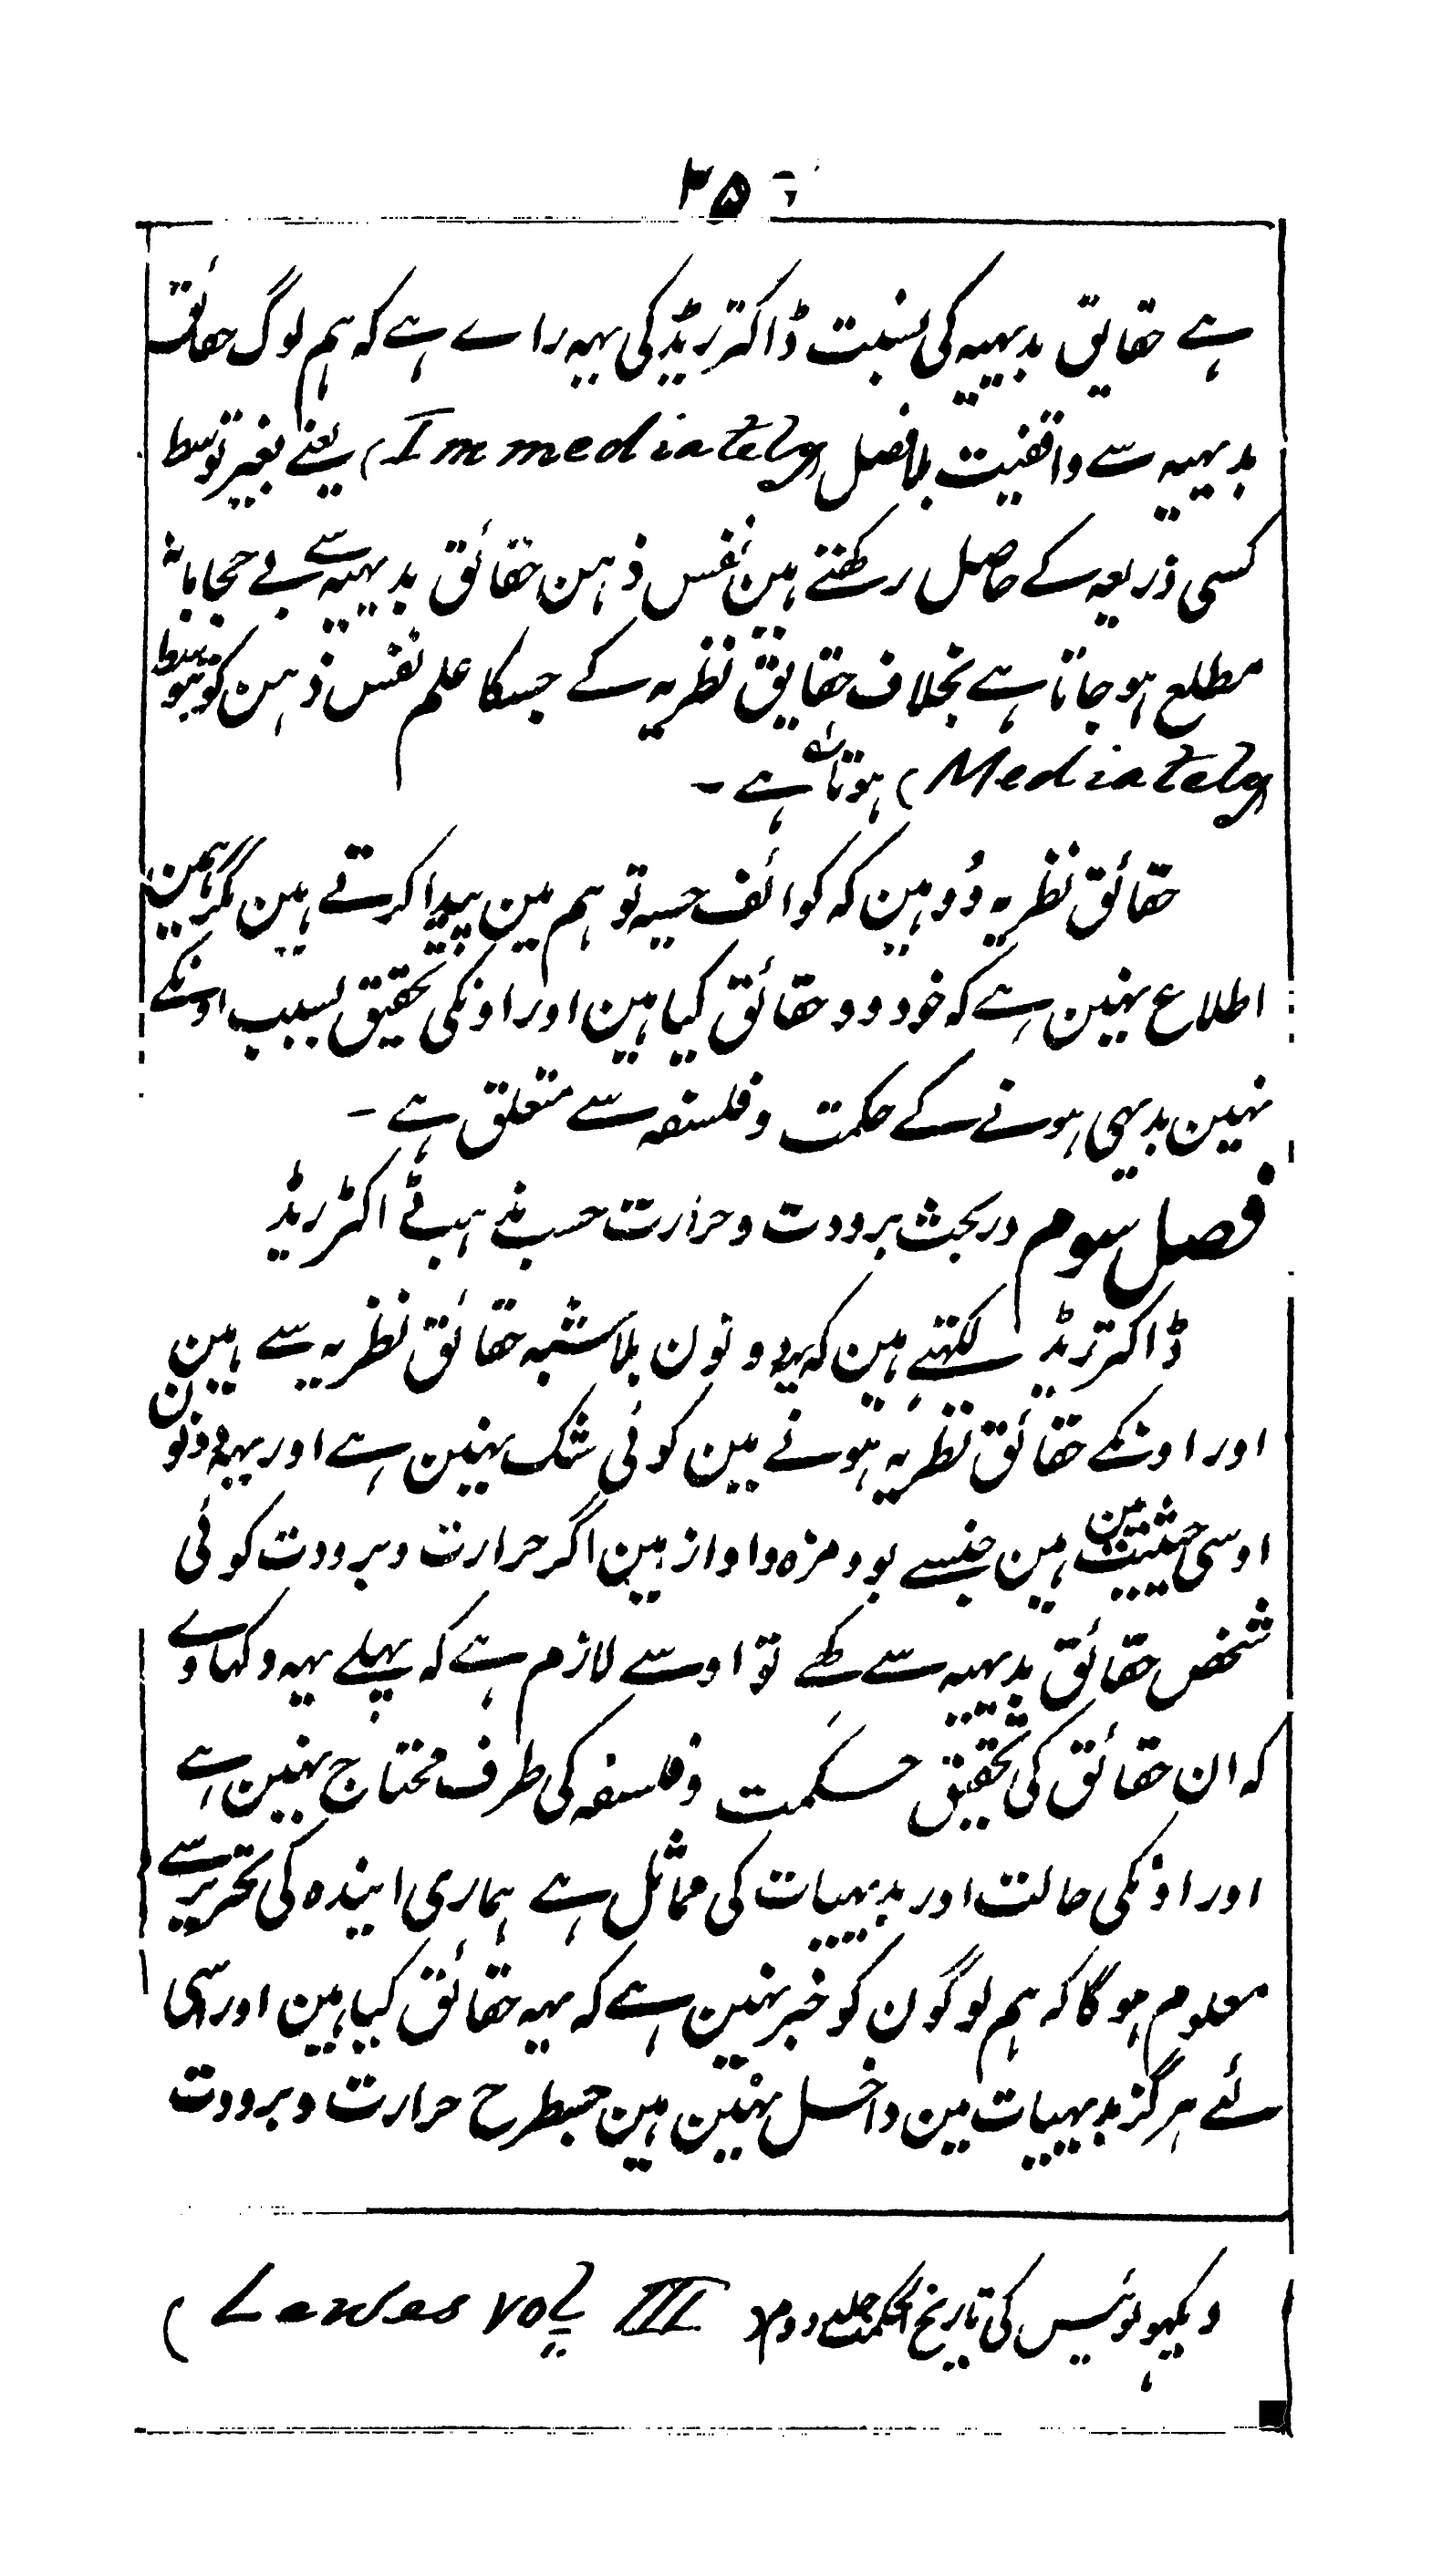 ہے حقایق بدیہیہ کی نسبت ڈاکتر ریڈ کی یہہ راے ہے کہ ہم لوگ حقائق
بدیہیہ سے واقفیت بلا فصل (Immediately) یعنے بغیر توسط
کسی ذریعہ کے حاصل رکھتے ہین نفس ذہن حقائق بدیہیہ سے بے حجابانہ
مطلع ہو جاتا ہے بخلاف حقایق نظریہ کے جسکا علم نفس ذہن کو بتوسط
(Mediately) ہوتا ہے ۔
حقائق نظریہ وُہ ہین کہ کوائف حسیہ تو ہم مین پیدا کرتے ہین مگر ہمین
اطلاع نہین ہے کہ خود وو حقائق کیا ہین اور اونکی تحقیق بسبب اونکے
نہین بدیہی ہونے کے حکمت و فلسفہ سے متعلق ہے ۔
فصل سوم در بحث برودت و حرارت حسب مذہب ڈاکٹر ریڈ
ڈاکتر ریڈ لکہتے ہین کہ یہہ دونون بلا شبہ حقائق نظریہ سے ہین
اور اونکے حقائق نظریہ ہونے مین کوئی شک نہین ہے اور یہہ دونون
اوسی حیثیت مین ہین جیسے بو و مزہ و اواز ہین اگر حرارت و برودت کوئی
شخص حقائق بدیہیہ سے کہے تو اوسے لازم ہے کہ پہلے یہہ دکہاوے
کہ ان حقائق کی تحقیق حکمت و فلسفہ کی طرف محتاج نہین ہے
اور اونکی حالت اور بدیہیات کی مماثل ہے ہماری ایندہ کی تحریر سے
معلوم ہوگا کہ ہم لوگون کو خبر نہین ہے کہ یہہ حقائق کیا ہین اور اسی
لئے ہرگز بدیہیات مین داخل نہین ہین جسطرح حرارت و برودت
دیکہو لوئیس کی تاریخ الحکمت جلد دوم (Lewes vol III)